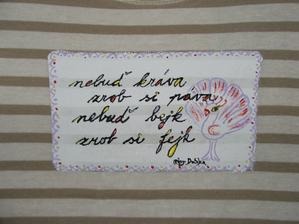 nebuď kráva
zrob si páva
nebuď bejk
zrob si fejk